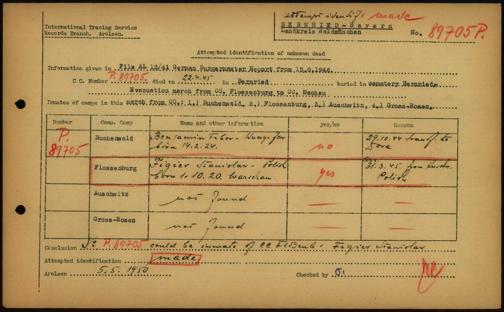 International Tracing Service
Records Branch. Arolsen.
attempt identif. made
BERNRIED-Bayern
Landkreis Waldmünchen
No. 89705 P.
Attempted identification of unknown dead
Information given in File AL 12/41 German Burgermaster Report from 12.9.1946.
C.C. Number P.89705 died to 22.4.45 in Bernried buried in cemetery Bernried.
Evacuation march from CC. Flossenburg to CC. Dachau
Comates of camps in this march from CC.: 1.) Buchenwald, 2.) Flossenburg, 3.) Auschwitz, 4.) Gross-Rosen.
Number Camp Name and other information yes/no Reason
P. 89705
Buchenwald Benjamin born 14.2.24. no 29.10.44 transf. to Dora
Flossenburg Figier Stanislav - Polish born 10.20. Warschau yes 31.3.45. from Polish
Auschwitz not found
Gross-Rosen not found
Conclusion Nr P.89705 could be inmate of CC Flossenb. Figier Stanislav
Attempted identification made
Arolsen 5.5.1950 Checked by